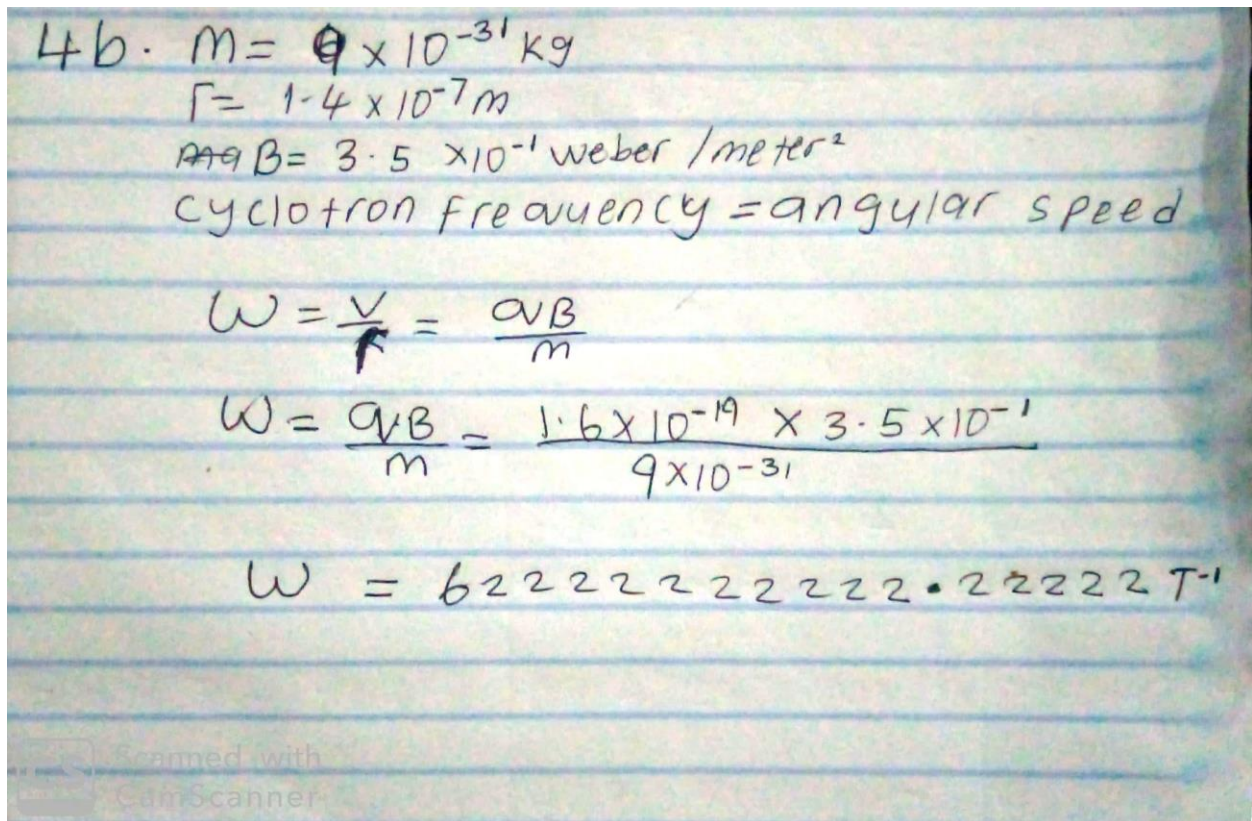 4b. m = 9 x 10-31 kg
r = 1.4 x 10-7 m
B = 3.5 x10-1 weber /meter2
cyclotron frequency = angular speed
W = V/r = qB/m
W = qB/m = 1.6 x 10-19 x 3.5 x10-1 / 9x10-31
W = 62222222222.22222 T-1
Scanned with
CamScanner